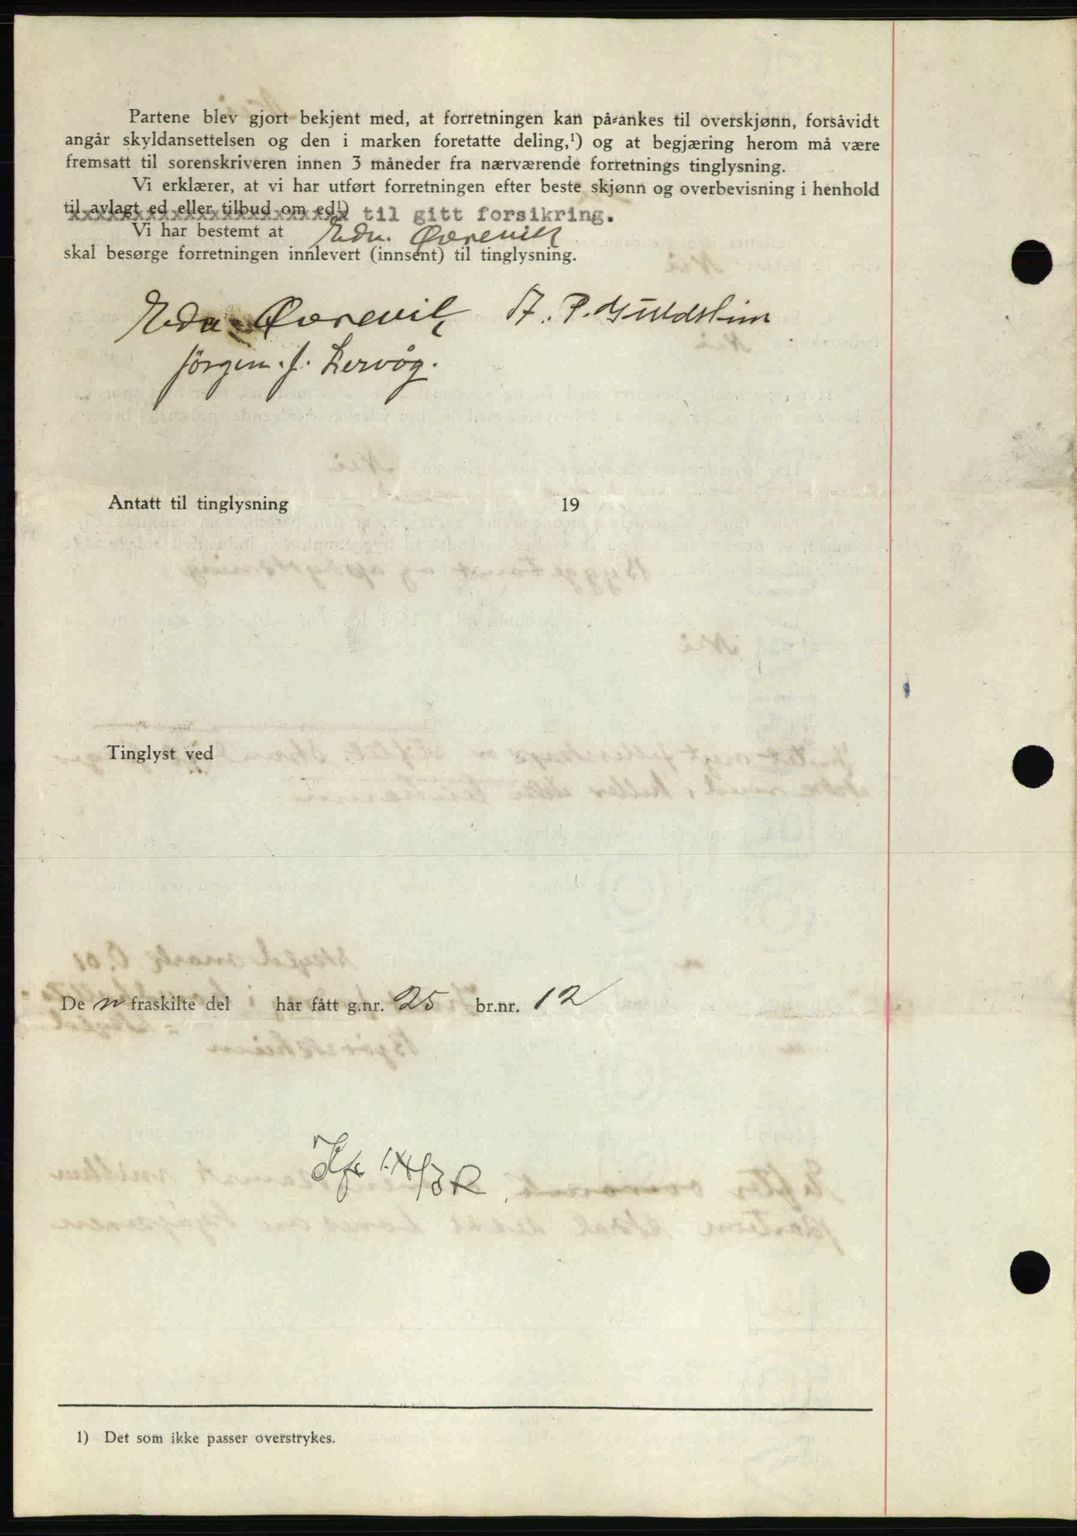 Partene blev gjort bekjent med, at forretningen kan påankes til overskjønn, forsåvidt
angår skyldansettelsen og den i marken foretatte deling,¹) og at begjæring herom må være
fremsatt til sorenskriveren innen 3 måneder fra nærværende forretnings tinglysning.
Vi erklærer, at vi har utført forretningen efter beste skjønn og overbevisning i henhold
til avlagt ed eller tilbud om ed¹) til gitt forsikring.
Vi har bestemt at Edv. Øvrevik
skal besørge forretningen innlevert (innsent) til tinglysning.
Edv. Øvrevik
Jørgen J. Lervåg.
Antatt til tinglysning 19
Tinglyst ved
De n fraskilte del har fått g.nr. 25 br.nr. 12
1) Det som ikke passer overstrykes.